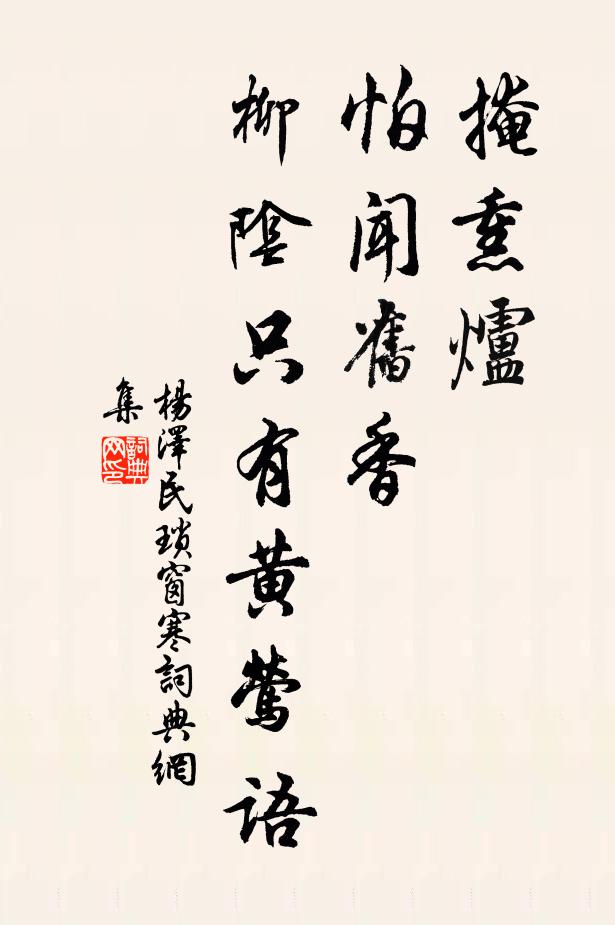 掩熏爐
怕聞舊香
柳陰只有黃鶯語
楊澤民瑣窗寒詞典網
集
詞典網印